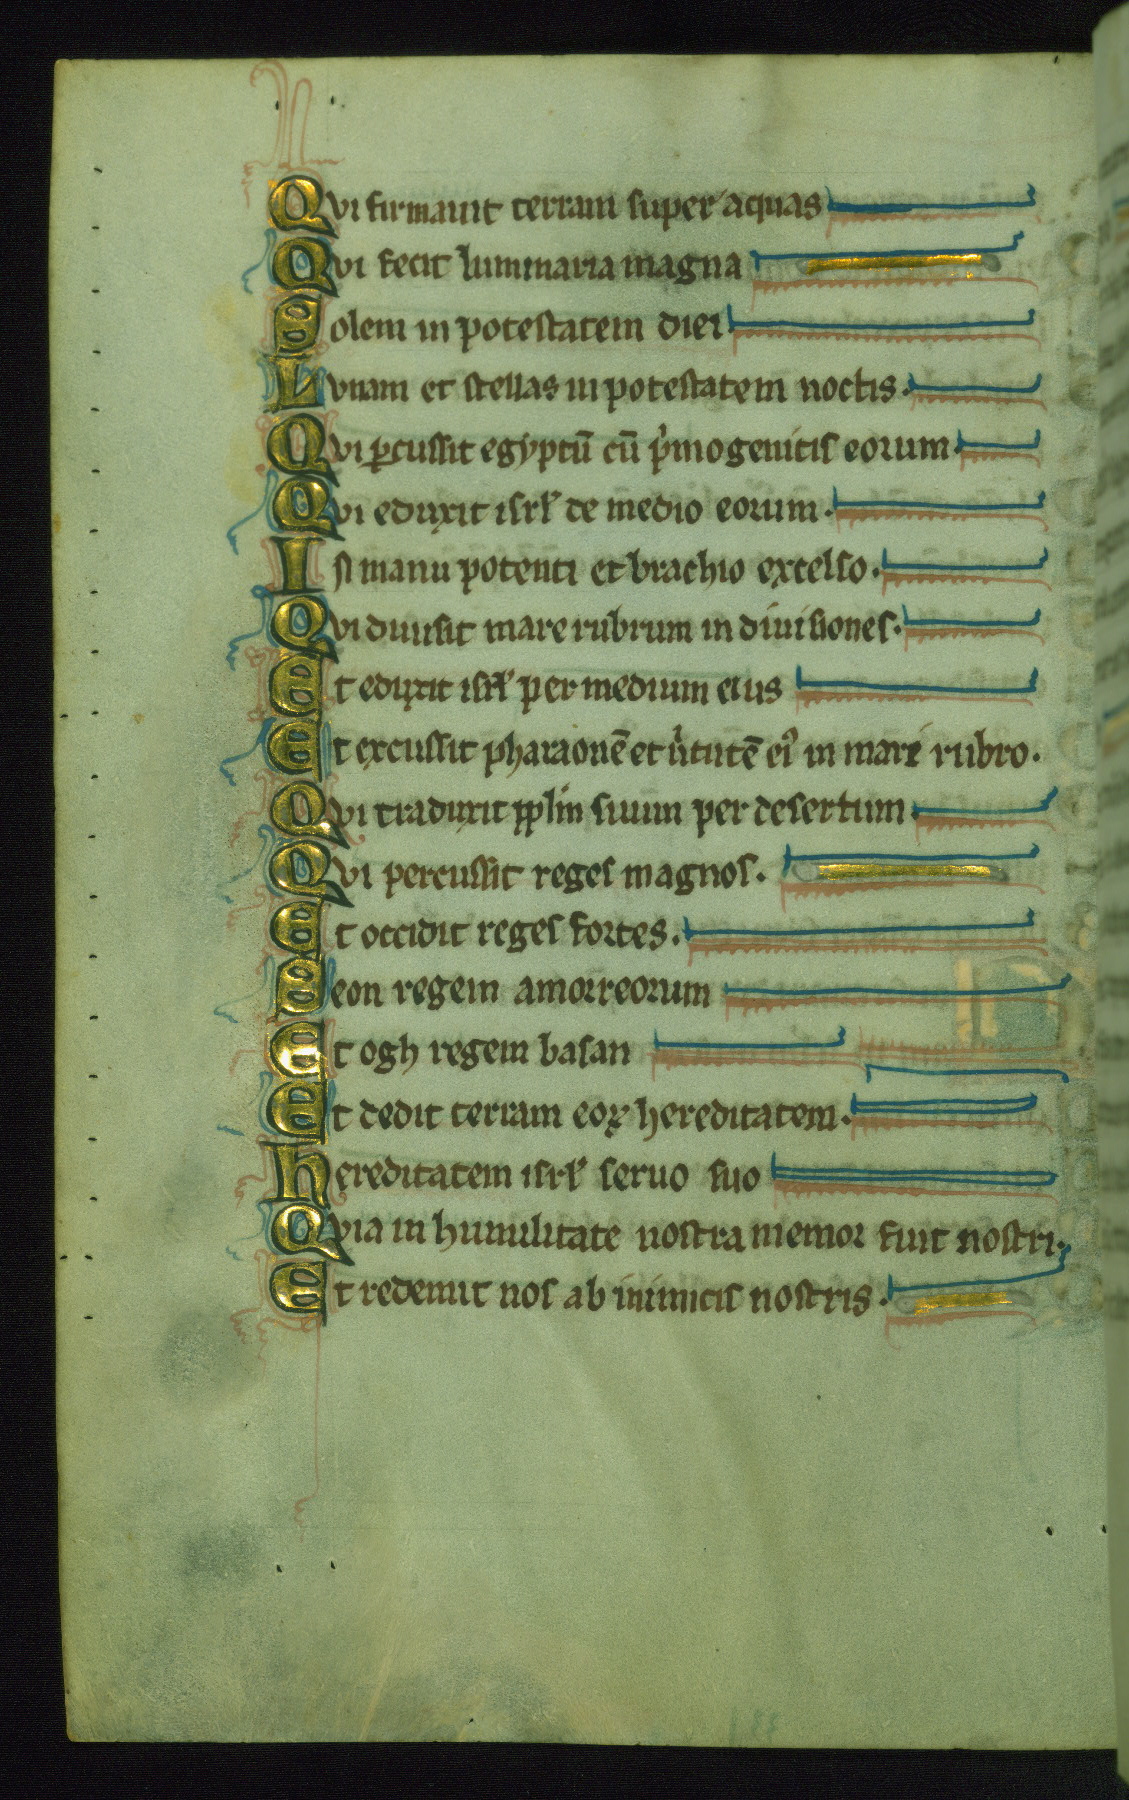 Qui firmauit terram super aquas
Qui fecit luminaria magna
Solem in potestatem diei
Lunam et stellas in potestatem noctis.
Qui ꝑcussit egyptū cū pͥmogenitis eorum.
Qui eduxit isrł de medio eorum.
In manu potenti et brachio excelso.
Qui diuisit mare rubrum in diuisiones.
Et eduxit isrł per medium eius
Et excussit pharaonē et uͥtutē eiꝰ in mari rubro.
Qui traduxit pplm̄ suum per desertum
Qui percussit reges magnos.
Et occidit reges fortes.
Seon regem amorreorum
Et ogh regem basan
Et dedit terram eoꝝ hereditatem.
Hereditatem isrł seruo suo
Quia in humilitate nostra memor fuit nostri.
Et redemit nos ab inimicis nostris.